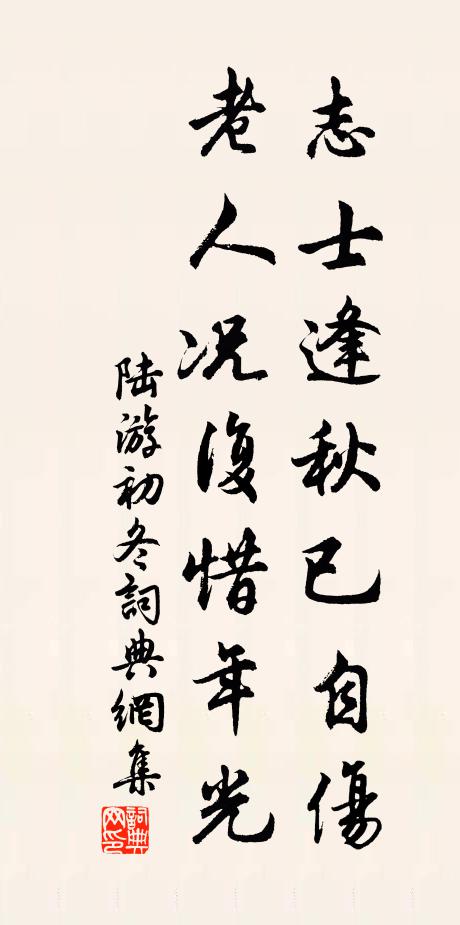 志士逢秋已自傷
老人况復惜年光
陆游初冬詞典網集
詞典网印